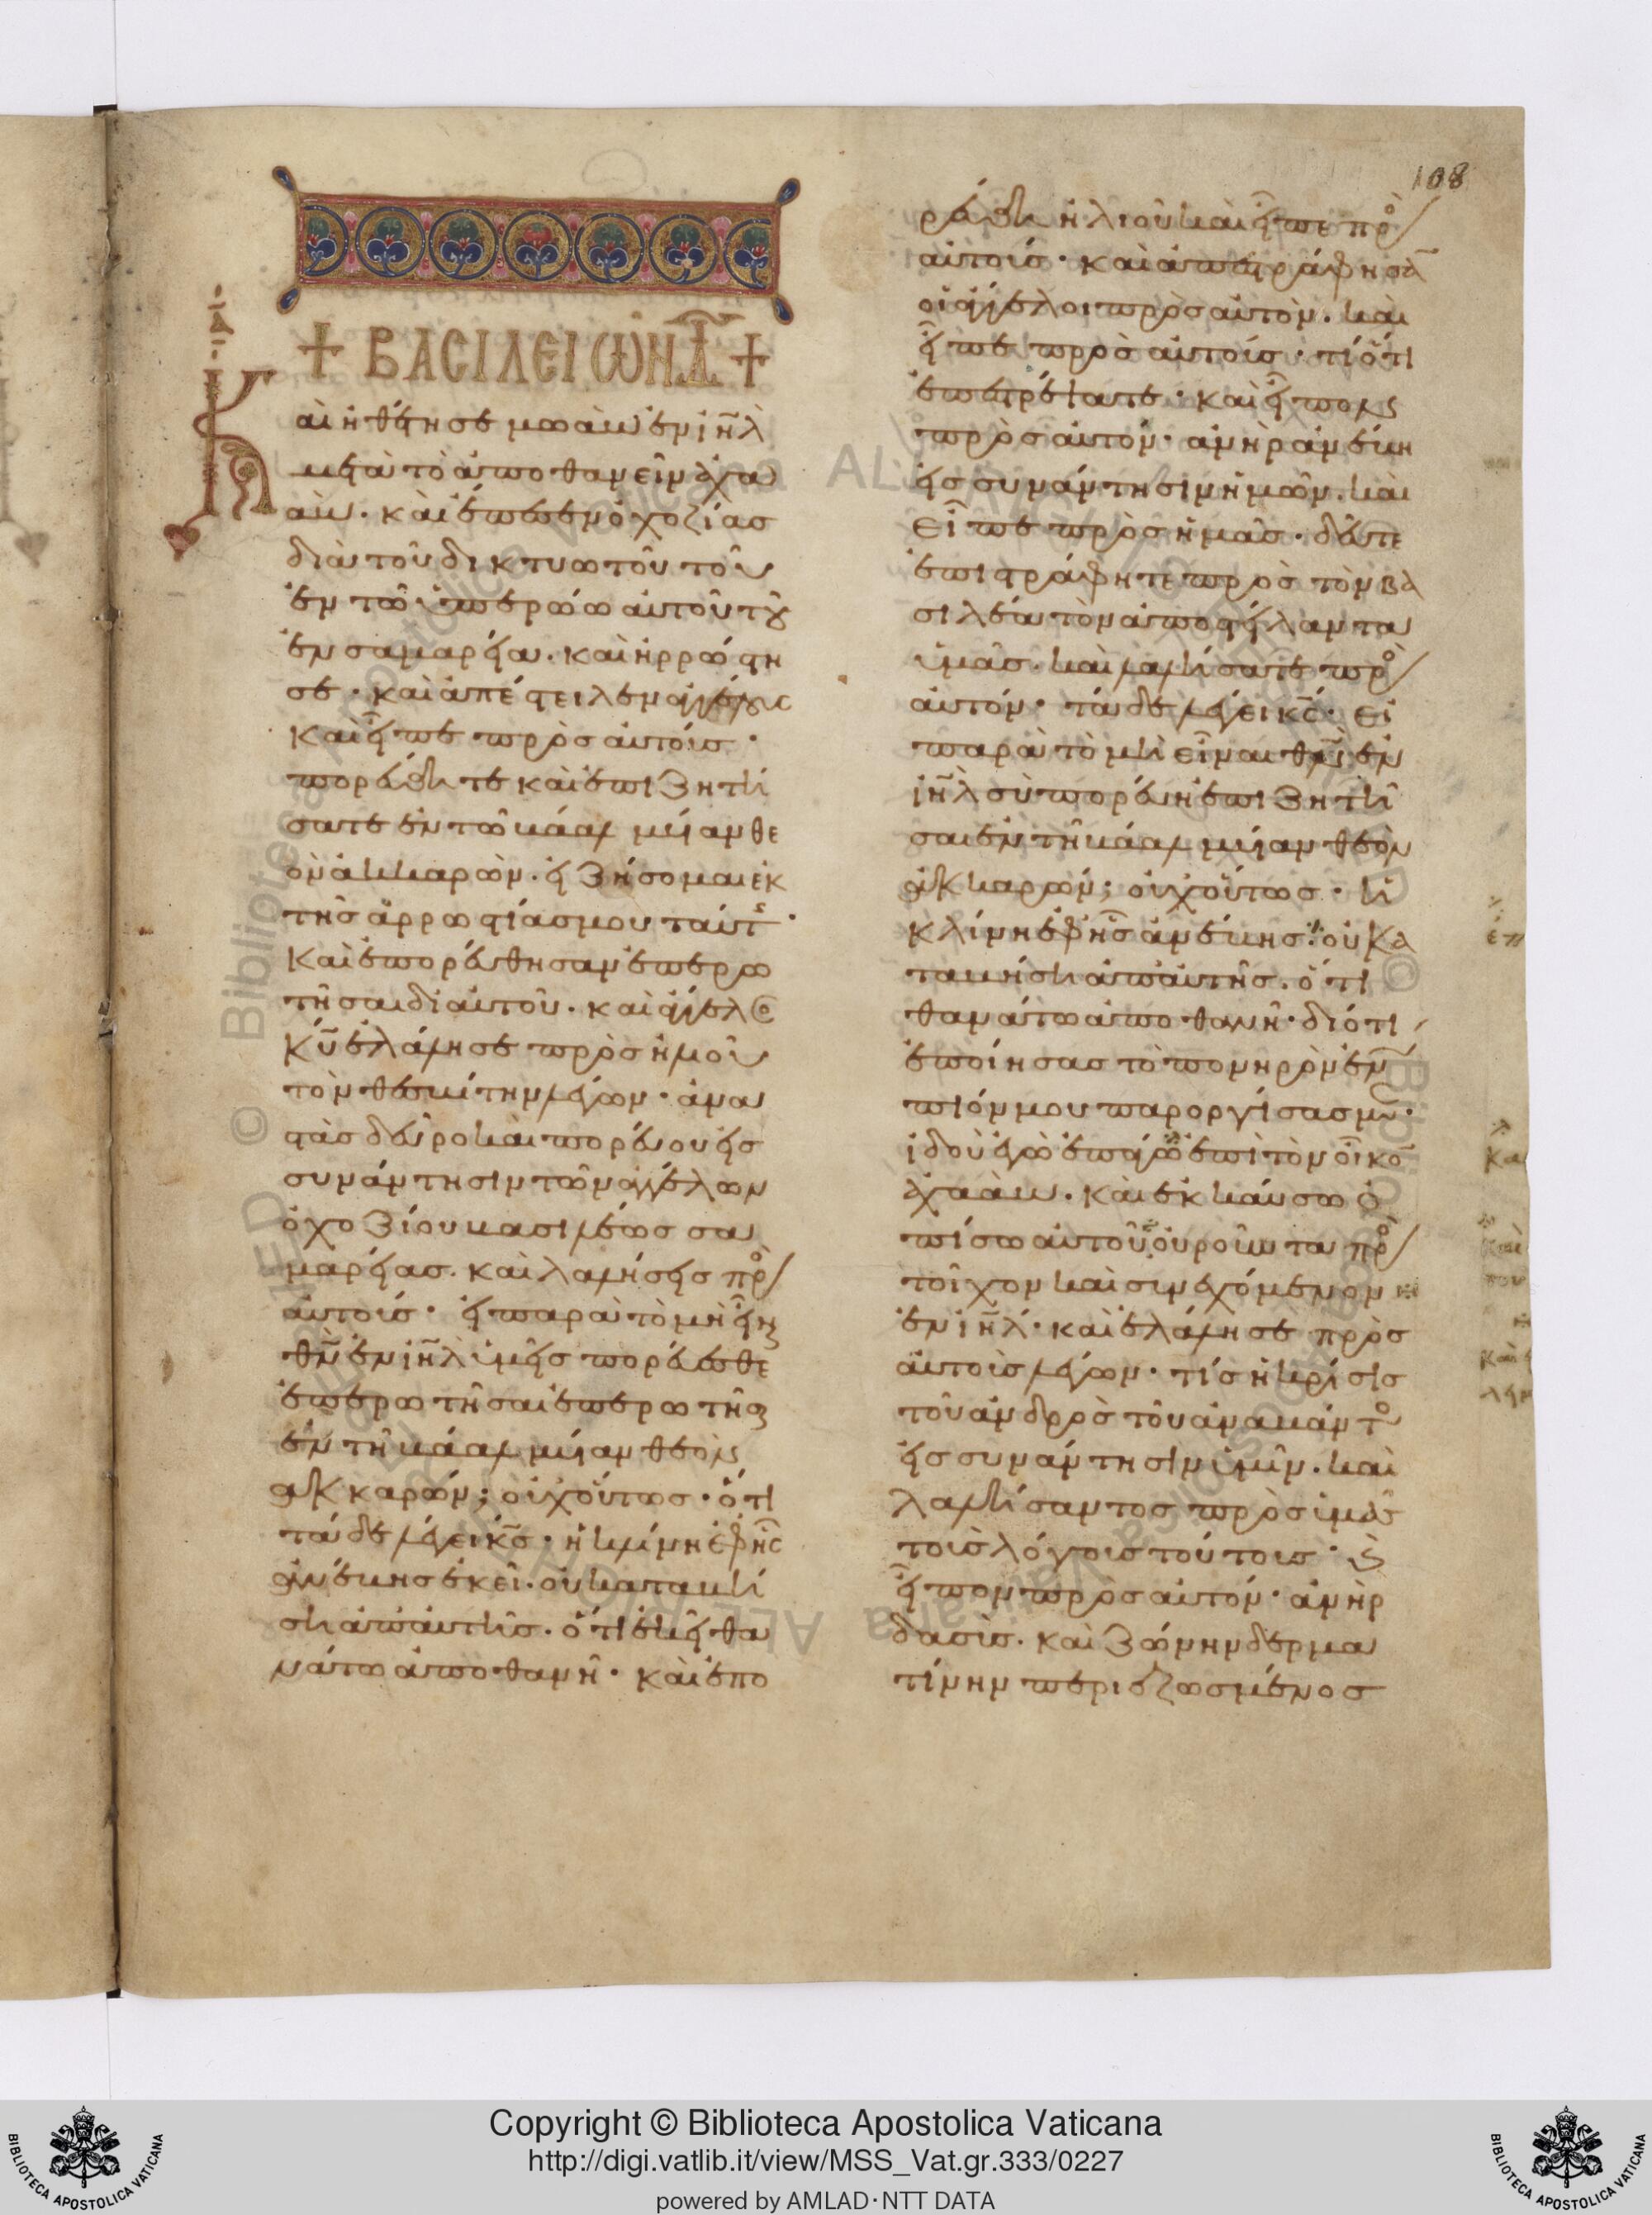 108
+ ΒΑΣΙΛΕΙΩΝ Δ +
Καὶ ἠθέτησε μωὰβ ἐν ἰη̄λ
μετὰ τὸ ἀποθανεῖν ἀχα
ὰβ. καὶ ἔπεσεν ὀχοζίας
διὰ τοῦ δικτυωτοῦ τοῦ
ἐν τῶ ὑπερώω αὐτοῦ τοῦ
ἐν σαμαρεία. καὶ ἠρρώστη
σε· καὶ ἀπέστειλεν ἀγγέλους
καὶ εἶπε πρὸς αὐτούς·
πορεύθητε καὶ ἐπιζητή
σατε ἐν τῶ βάαλ μυῖαν θε
ὸν ἀκκαρὼν. εἰ ζήσομαι ἐκ
τῆς ἀρρωστίας μου ταύτης·
Καὶ ἐπορεύθησαν ἐπερω
τῆσαι δι αὐτοῦ. καὶ ἄγγελος
κῡ ἐλάλησε πρὸς ἡλιοὺ
τὸν θεσβίτην λέγων· ἀνα
στὰς δεῦρο καὶ πορεύου εἰς
συνάντησιν τῶν ἀγγέλων
ὀχοζίου βασιλέως σα
μαρείας. καὶ λαλήσεις πρὸ
αὐτούς· εἰ παρὰ τὸ μὴ εἶναι
θν̄ ἐν ἰη̄λ ὑμεῖς πορεύεσθε
ἐπερωτῆσαι ἐπερωτῆσαι
ἐν τῆ βάαλ μυῖαν θεὸν
ἀκκαρών; οὐχ οὕτως· ὅτι
τάδε λέγει κς̄· ἡ κλίνη ἐφ ἧς
ἀνέβης ἐκεῖ. οὐ καταβή
ση ἀπ αὐτῆς. ὅτι ἐκεῖ θα
νάτω ἀποθανῆ· καὶ ἐπο
ρεύθη ἡλιοὺ καὶ εἶπε πρὸ
αὐτούς· καὶ ἀπεστράφησᾱ
οἱ ἄγγελοι πρὸς αὐτὸν. καὶ
εἶπε πρὸς αὐτούς· τί ὅτι
ἐπεστρέψατε· καὶ εἶπον
πρὸς αὐτόν· ἀνὴρ ἀνέβη
εἰς συνάντησιν ἡμῶν. καὶ
εἶπε πρὸς ἡμᾶς· δεῦτε
ἐπιστράφητε πρὸς τὸν βα
σιλέα τὸν ἀποστείλαντα
ὑμᾶς. καὶ λαλήσατε πρὸ
αὐτόν· τάδε λέγει κς̄· εἰ
παρὰ τὸ μὴ εἶναι θν̄ ἐν
ἰη̄λ σὺ πορεύη ἐπιζητῆ
σαι ἐν τῆ βάαλ μυῖαν θεὸν
ἀκκαρών; οὐχ οὕτως· ἡ
κλίνη ἐφ ἧς ἀνέβης· οὐ κα
ταβήση ἀπ αὐτῆς. ὅτι
θανάτω ἀποθανῆ· διότι
ἐποίησας τὸ πονηρὸν ἐν
πιόν μου παροργίσας με·
ἰδοὺ ἐγὼ ἐπάγω ἐπὶ τὸν οἶκο̄
ἀχαάβ. καὶ ἐκκαύσω ὀ
πίσω αὐτοῦ οὐροῦντα πρὸ
τοῖχον καὶ συνεχόμενον
ἐν ἰη̄λ· καὶ ἐλάλησε πρὸς
αὐτοὺς λέγων· τίς ἡ κρίσις
τοῦ ἀνδρὸς τοῦ ἀναβάντο
εἰς συνάντησιν ὑμῖν. καὶ
λαλήσαντος πρὸς ὑμᾶς
τοὺς λόγους τούτους· ϗ
εἶπον πρὸς αὐτόν· ἀνὴρ
δασύς. καὶ ζώνην δερμα
τίνην περιεζωσμένος
Copyright © Biblioteca Apostolica Vaticana
http://digi.vatlib.it/view/MSS_Vat.gr.333/0227
powered by AMLAD·NTT DATA
BIBLIOTECA APOSTOLICA VATICANA
BIBLIOTECA APOSTOLICA VATICANA